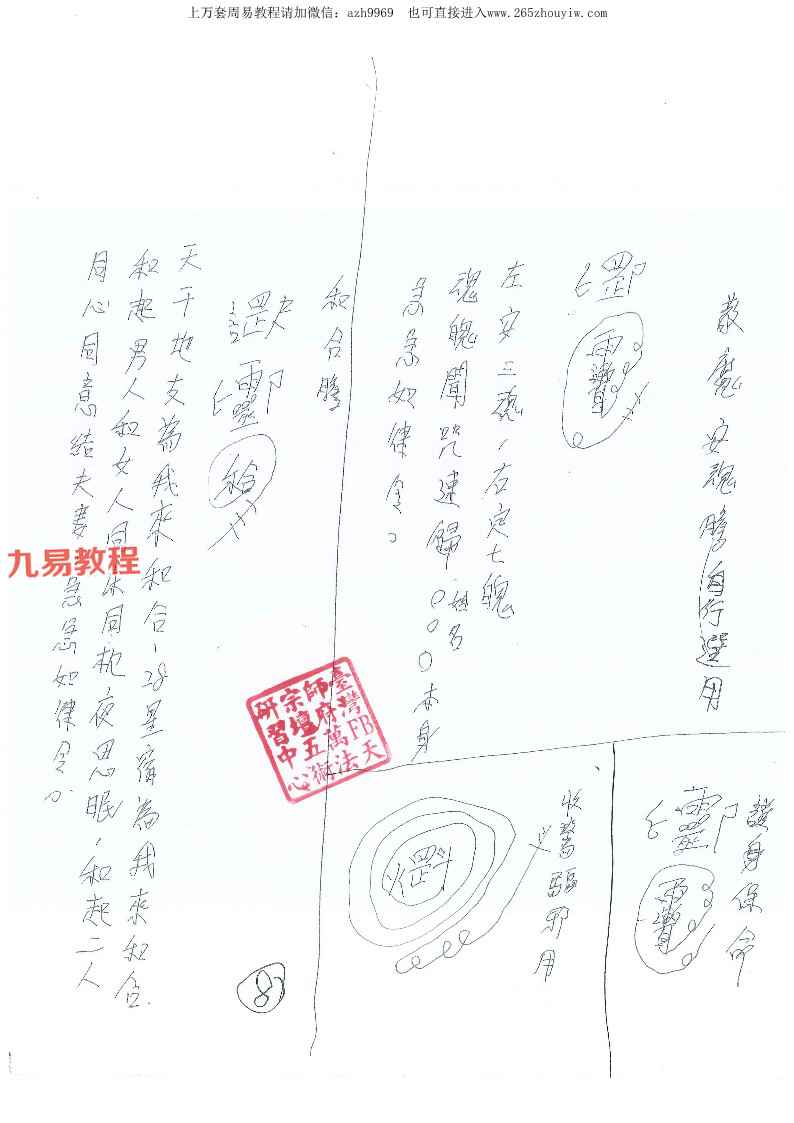 上万套周易教程请加微信：azh9969　也可直接进入www.265zhouyiw.com
魔安魂 自行選用
左安三魂，右定七魄
魂魄聞咒連歸 姓名〇〇〇本身
急急如律令
護身保命
收驚驅邪用
和合
天干地支為我來和合，28星宿為我來和合
和起男人和女人同床同枕夜思眠，和起二人
同心同意結夫妻 急急如律令
8
九易教程
臺灣FB天
師府萬法
宗壇五術
研習中心